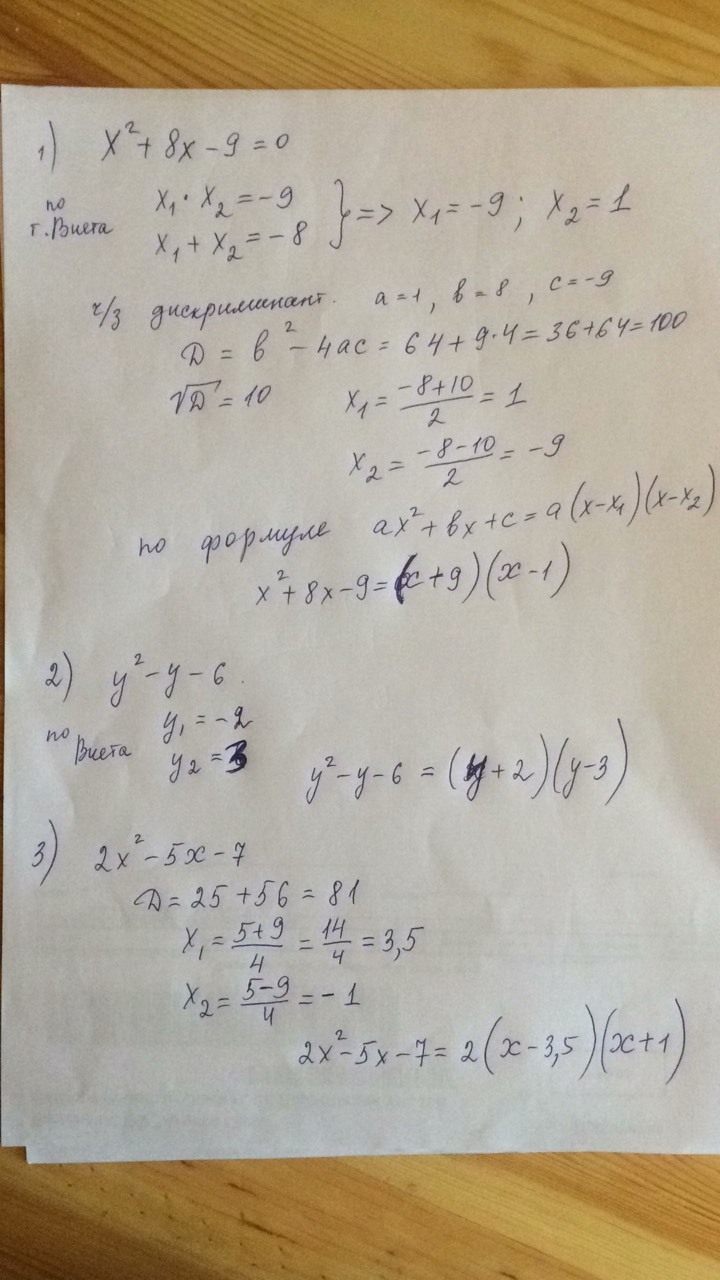 1) x² + 8x - 9 = 0
по т. Виета
x₁ · x₂ = -9
x₁ + x₂ = -8 } => x₁ = -9 ; x₂ = 1
ч/з дискриминант. a = 1, b = 8, c = -9
D = b² - 4ac = 64 + 9·4 = 36 + 64 = 100
√D = 10 x₁ = (-8+10)/2 = 1
x₂ = (-8-10)/2 = -9
по формуле ax² + bx + c = a(x-x₁)(x-x₂)
x² + 8x - 9 = (x + 9)(x - 1)
2) y² - y - 6.
по Виета
y₁ = -2
y₂ = 3 y² - y - 6 = (y + 2)(y - 3)
3) 2x² - 5x - 7
D = 25 + 56 = 81
x₁ = (5+9)/4 = 14/4 = 3,5
x₂ = (5-9)/4 = -1
2x² - 5x - 7 = 2(x - 3,5)(x + 1)